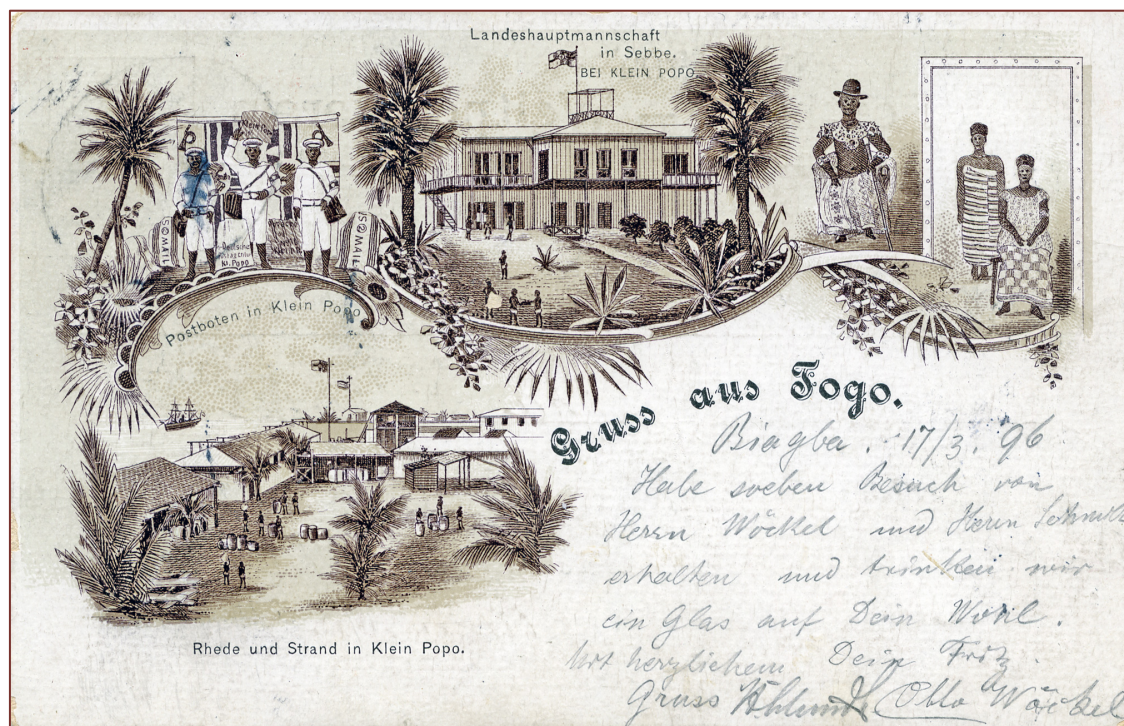 Landeshauptmannschaft
in Sebbe.
BEI KLEIN POPO
MAIL
US MAIL
Deutsche
Kl. Popo
Postboten in Klein Popo
Gruss aus Togo.
Biagba. 17/3. 96
Habe soeben Besuch von
Herrn Wöckel und Herrn
erhalten und trinken wir
ein Glas auf Dein Wohl.
Mit herzlichem Dein Fritz.
Gruss Otto Wöckel
Rhede und Strand in Klein Popo.